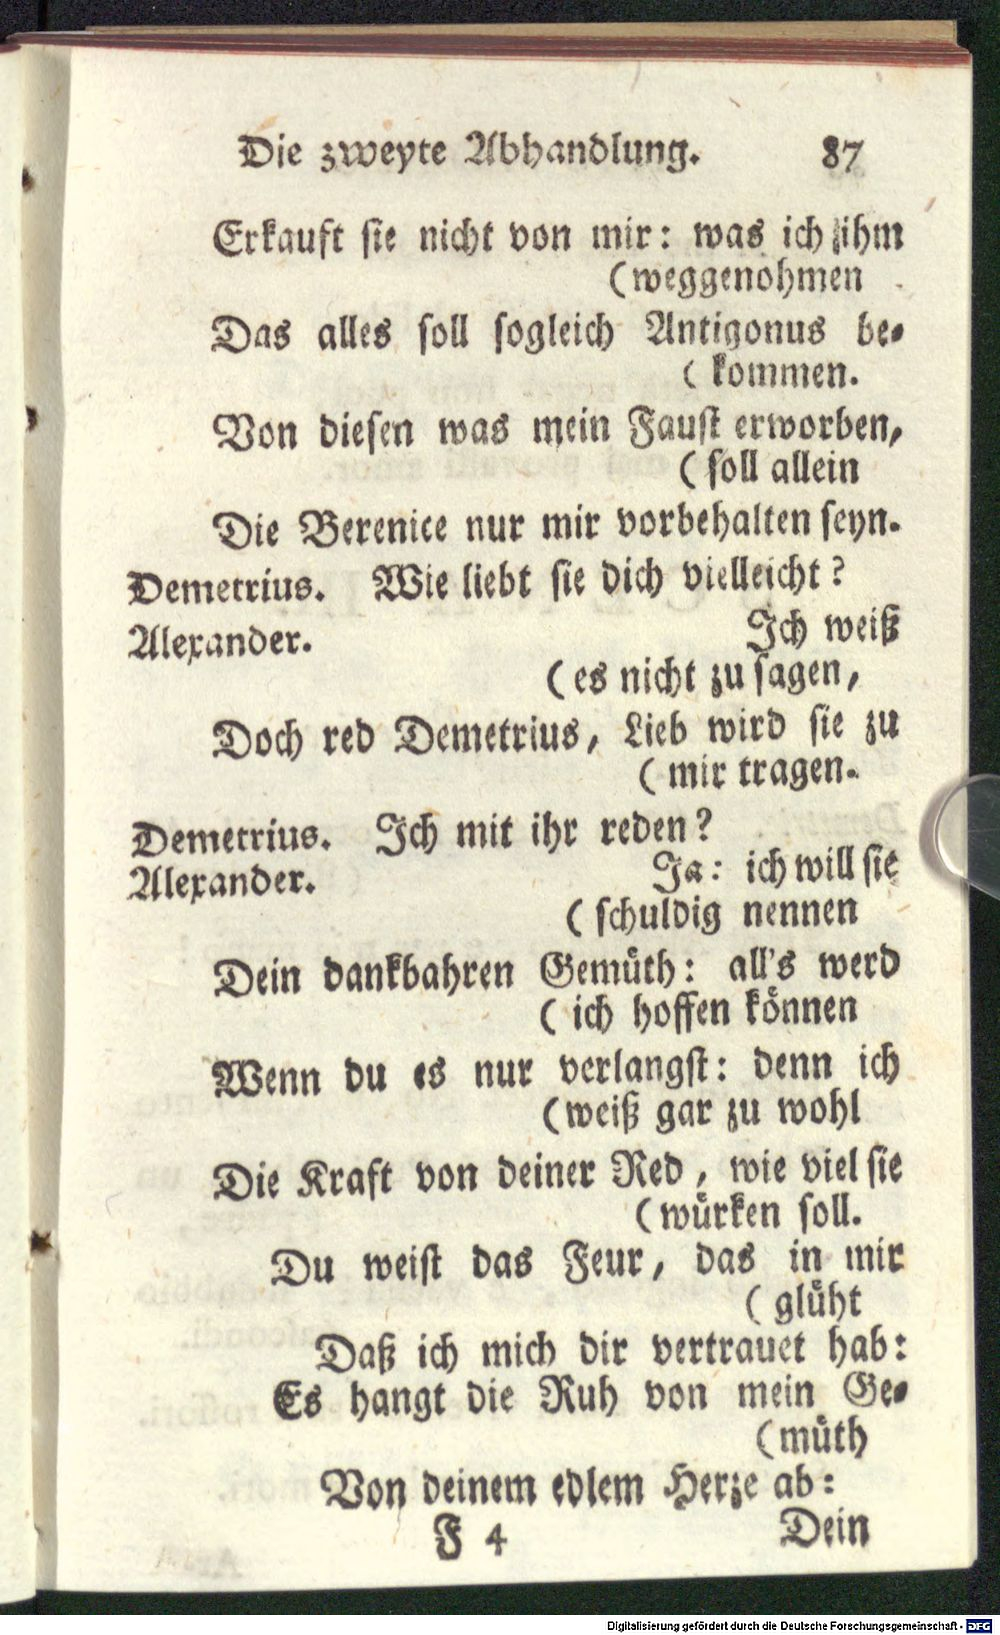 Die zweyte Abhandlung. 87
Erkauft sie nicht von mir: was ich ihm
(weggenohmen
Das alles soll sogleich Antigonus be-
( kommen.
Von diesen was mein Faust erworben,
( soll allein
Die Berenice nur mir vorbehalten seyn.
Demetrius. Wie liebt sie dich vielleicht?
Alexander. Ich weiß
( es nicht zu sagen,
Doch red Demetrius, Lieb wird sie zu
( mir tragen.
Demetrius. Ich mit ihr reden?
Alexander. Ja: ich will sie
( schuldig nennen
Dein dankbahren Gemüth: all's werd
( ich hoffen können
Wenn du es nur verlangst: denn ich
(weiß gar zu wohl
Die Kraft von deiner Red, wie viel sie
(würken soll.
Du weist das Feur, das in mir
( glüht
Daß ich mich dir vertrauet hab:
Es hangt die Ruh von mein Ge-
(müth
Von deinem edlem Herze ab:
F 4 Dein
Digitalisierung gefördert durch die Deutsche Forschungsgemeinschaft - DFG